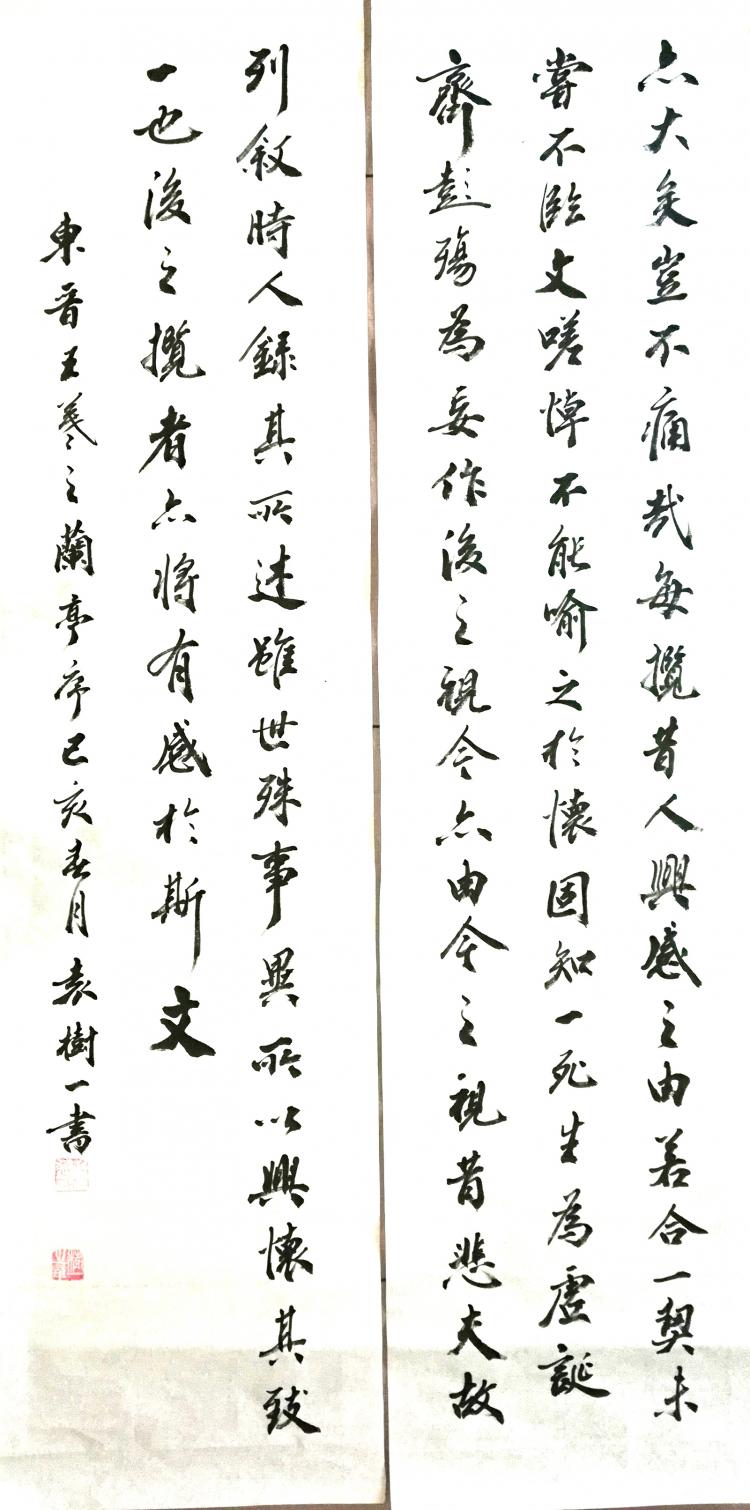 亦大矣豈不痛哉每攬昔人興感之由若合一契未
嘗不臨文嗟悼不能喻之於懷固知一死生為虛誕
齊彭殤為妄作後之視今亦由今之視昔悲夫故
列敘時人錄其所述雖世殊事異所以興懷其致
一也後之攬者亦將有感於斯文
東晉王羲之蘭亭序己亥春月袁樹一書